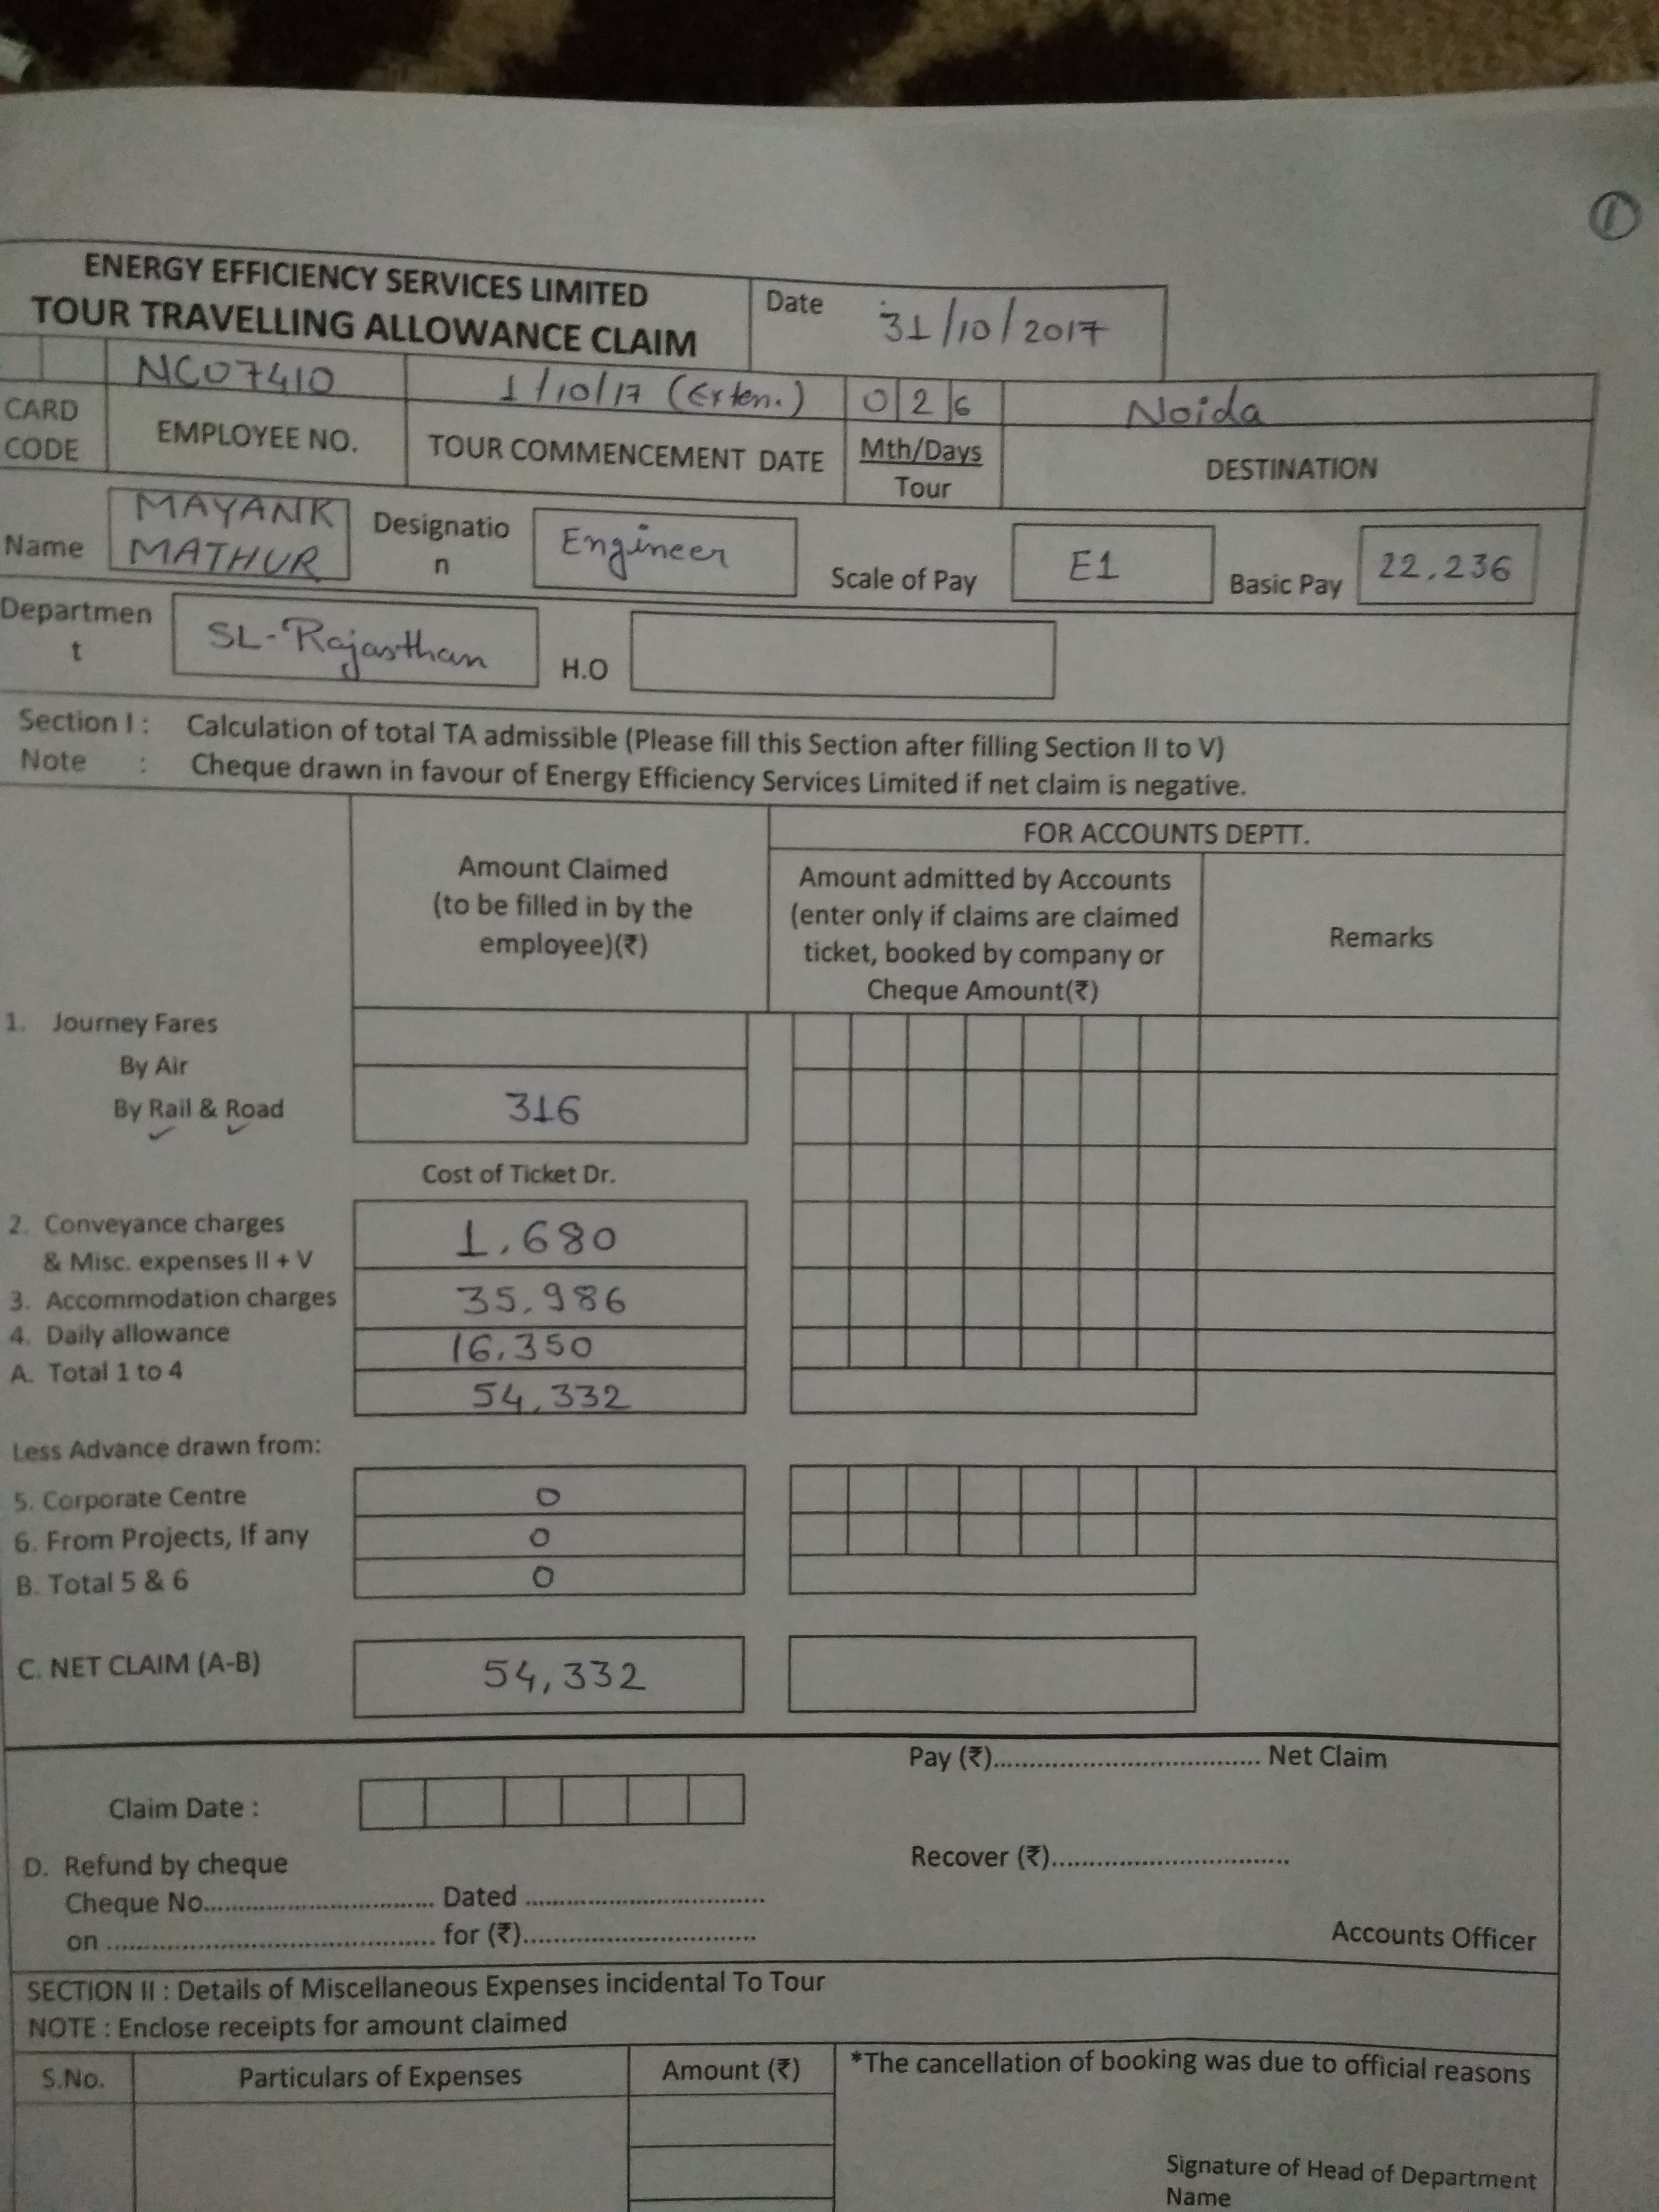 1
ENERGY EFFICIENCY SERVICES LIMITED
TOUR TRAVELLING ALLOWANCE CLAIM
Date 31/10/2017
NC07410 1/10/17 (Exten.) 0 2 6 Noida
CARD CODE EMPLOYEE NO. TOUR COMMENCEMENT DATE Mth/Days Tour DESTINATION
Name MAYANK MATHUR Designatio n Engineer Scale of Pay E1 Basic Pay 22,236
Departmen t SL-Rajasthan H.O
Section I : Calculation of total TA admissible (Please fill this Section after filling Section II to V)
Note : Cheque drawn in favour of Energy Efficiency Services Limited if net claim is negative.
FOR ACCOUNTS DEPTT.
Amount Claimed
(to be filled in by the
employee)(₹)
Amount admitted by Accounts
(enter only if claims are claimed
ticket, booked by company or
Cheque Amount(₹)
Remarks
1. Journey Fares
By Air
By Rail & Road 316
Cost of Ticket Dr.
2. Conveyance charges
& Misc. expenses II + V 1,680
3. Accommodation charges 35,986
4. Daily allowance 16,350
A. Total 1 to 4 54,332
Less Advance drawn from:
5. Corporate Centre 0
6. From Projects, If any 0
B. Total 5 & 6 0
C. NET CLAIM (A-B) 54,332
Pay (₹)...................................... Net Claim
Claim Date :
D. Refund by cheque
Recover (₹)..................................
Cheque No................................. Dated ...................................
on ............................................... for (₹)..................................
Accounts Officer
SECTION II : Details of Miscellaneous Expenses incidental To Tour
NOTE : Enclose receipts for amount claimed
S.No. Particulars of Expenses Amount (₹) *The cancellation of booking was due to official reasons
Signature of Head of Department
Name